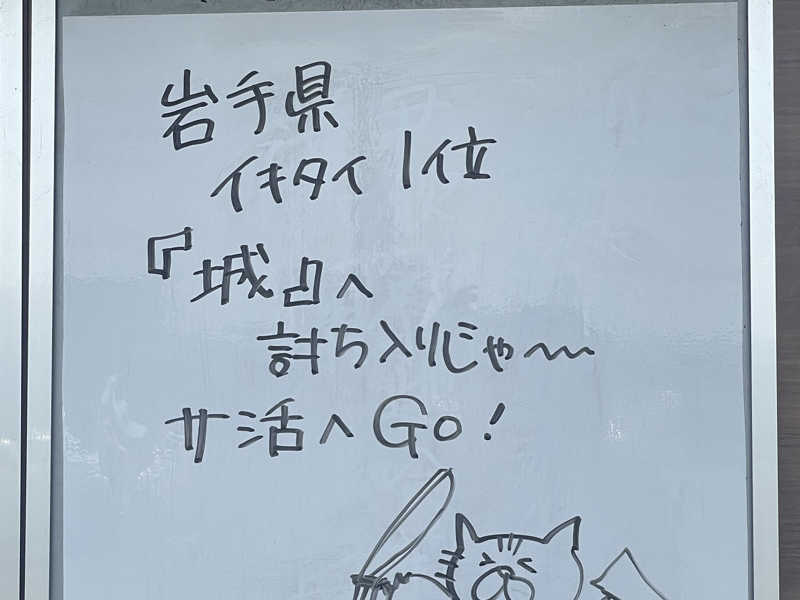 岩手県
イキタイ1位
『城』へ
討ち入りじゃ〜
サ活へGo!